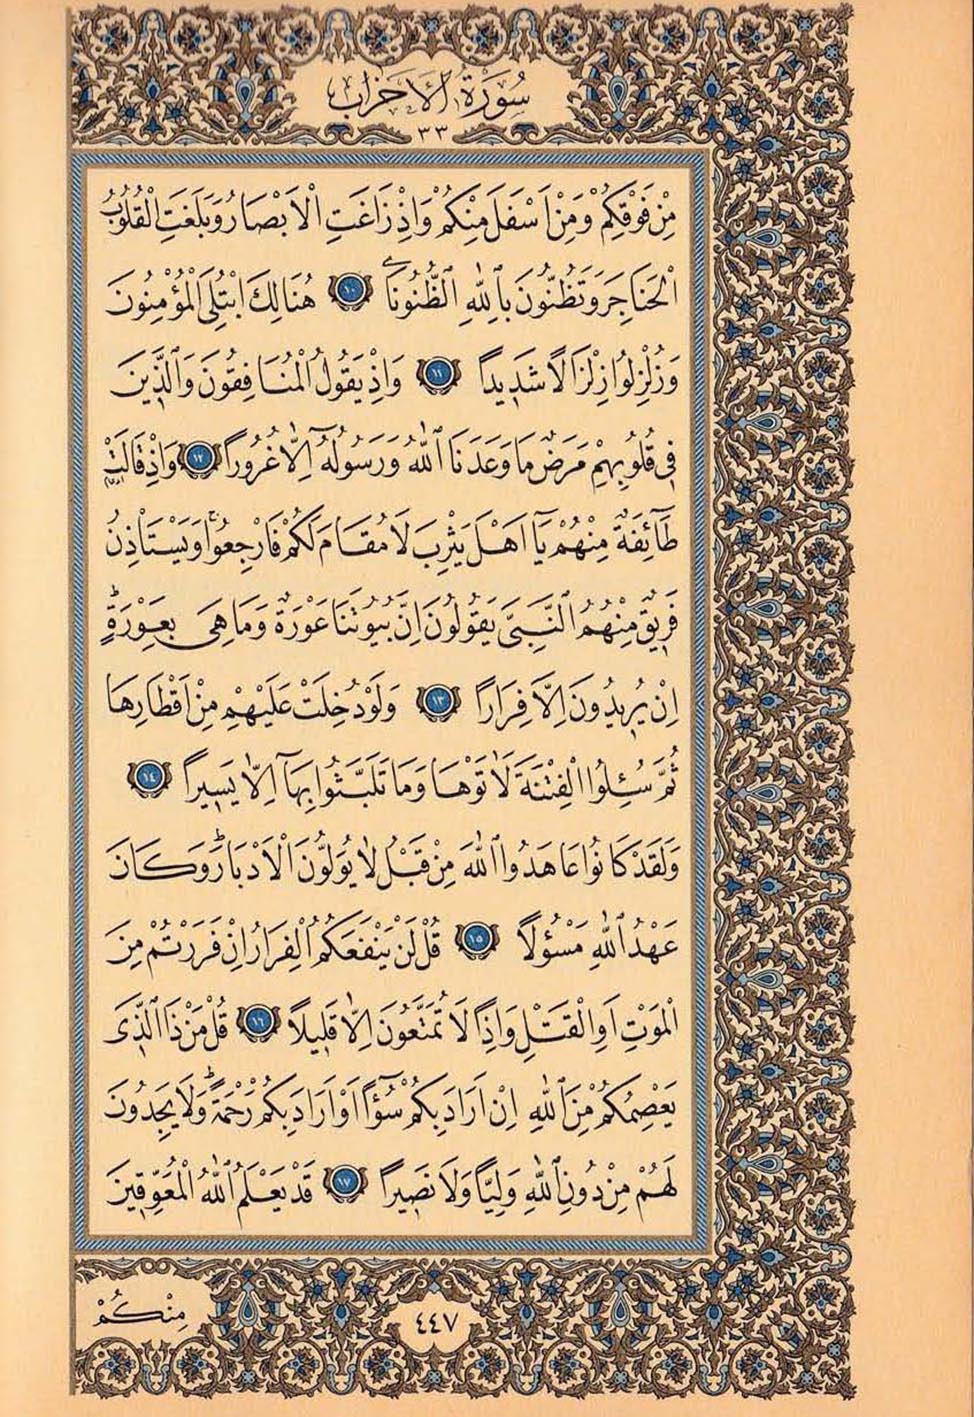 سُورَةُ الْاَحْزَابِ
٣٣
مِنْ فَوْقِكُمْ وَمِنْ اَسْفَلَ مِنْكُمْ وَاِذْ زَاغَتِ الْاَبْصَارُ وَبَلَغَتِ الْقُلُوبُ
الْحَنَاجِرَ وَتَظُنُّونَ بِاللّٰهِ الظُّنُونَا ١٠ هُنَالِكَ ابْتُلِيَ الْمُؤْمِنُونَ
وَزُلْزِلُوا زِلْزَالًا شَدٖيدًا ١١ وَاِذْ يَقُولُ الْمُنَافِقُونَ وَالَّذٖينَ
فٖي قُلُوبِهِمْ مَرَضٌ مَا وَعَدَنَا اللّٰهُ وَرَسُولُهُٓ اِلَّا غُرُورًا ١٢ وَاِذْ قَالَتْ
طَٓائِفَةٌ مِنْهُمْ يَٓا اَهْلَ يَثْرِبَ لَا مُقَامَ لَكُمْ فَارْجِعُواۚ وَيَسْتَاْذِنُ
فَرٖيقٌ مِنْهُمُ النَّبِيَّ يَقُولُونَ اِنَّ بُيُوتَنَا عَوْرَةٌ وَمَا هِيَ بِعَوْرَةٍۚ
اِنْ يُرٖيدُونَ اِلَّا فِرَارًا ١٣ وَلَوْ دُخِلَتْ عَلَيْهِمْ مِنْ اَقْطَارِهَا
ثُمَّ سُئِلُوا الْفِتْنَةَ لَاٰتَوْهَا وَمَا تَلَبَّثُوا بِهَٓا اِلَّا يَسٖيرًا ١٤
وَلَقَدْ كَانُوا عَاهَدُوا اللّٰهَ مِنْ قَبْلُ لَا يُوَلُّونَ الْاَدْبَارَۚ وَكَانَ
عَهْدُ اللّٰهِ مَسْؤُلًا ١٥ قُلْ لَنْ يَنْفَعَكُمُ الْفِرَارُ اِنْ فَرَرْتُمْ مِنَ
الْمَوْتِ اَوِ الْقَتْلِ وَاِذًا لَا تُمَتَّعُونَ اِلَّا قَلٖيلًا ١٦ قُلْ مَنْ ذَا الَّذٖي
يَعْصِمُكُمْ مِنَ اللّٰهِ اِنْ اَرَادَ بِكُمْ سُٓؤًا اَوْ اَرَادَ بِكُمْ رَحْمَةًۚ وَلَا يَجِدُونَ
لَهُمْ مِنْ دُونِ اللّٰهِ وَلِيًّا وَلَا نَصٖيرًا ١٧ قَدْ يَعْلَمُ اللّٰهُ الْمُعَوِّقٖينَ
مِنْكُمْ
٤٤٧